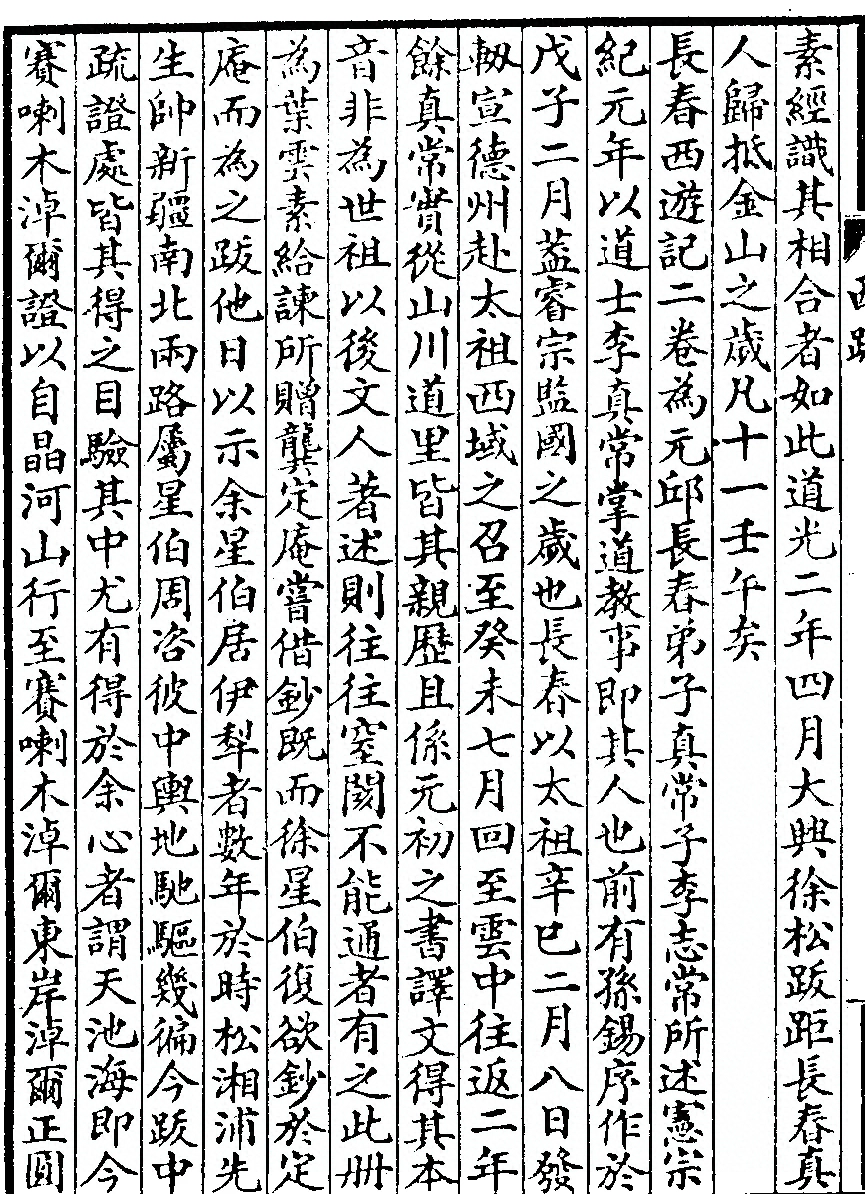 素經識其相合者如此道光二年四月大興徐松跋距長春真
人歸抵金山之歲凡十一壬午矣
長春西遊記二卷為元邱長春弟子真常子李志常所述憲宗
紀元年以道士李真常掌道教事即其人也前有孫錫序作於
戊子二月葢睿宗監國之歲也長春以太祖辛巳二月八日發
軔宣德州赴太祖西域之召至癸未七月回至雲中往返二年
餘真常實從山川道里皆其親歷且係元初之書譯文得其本
音非為世祖以後文人著述則往往窒閡不能通者有之此册
為葉雲素給諫所贈龔定庵嘗借鈔既而徐星伯復欲鈔於定
庵而為之跋他日以示余星伯居伊犁者數年於時松湘浦先
生帥新疆南北兩路屬星伯周咨彼中輿地馳驅幾徧今跋中
疏證處皆其得之目驗其中尤有得於余心者謂天池海即今
賽喇木淖爾證以自晶河山行至賽喇木淖爾東岸淖爾正圓
西